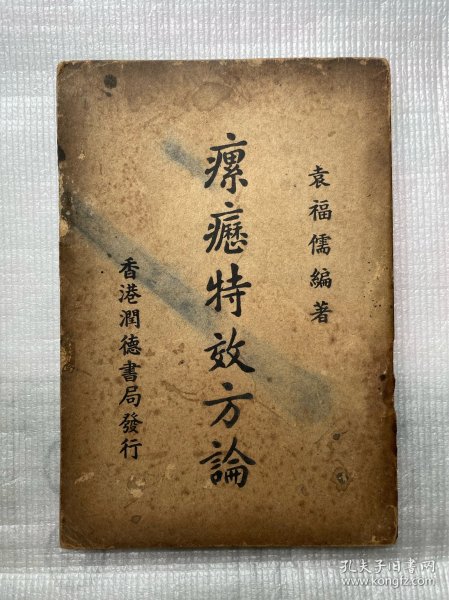 袁福儒編著
瘰癧特效方論
香港潤德書局發行
孔夫子旧书网
www.kongfz.com